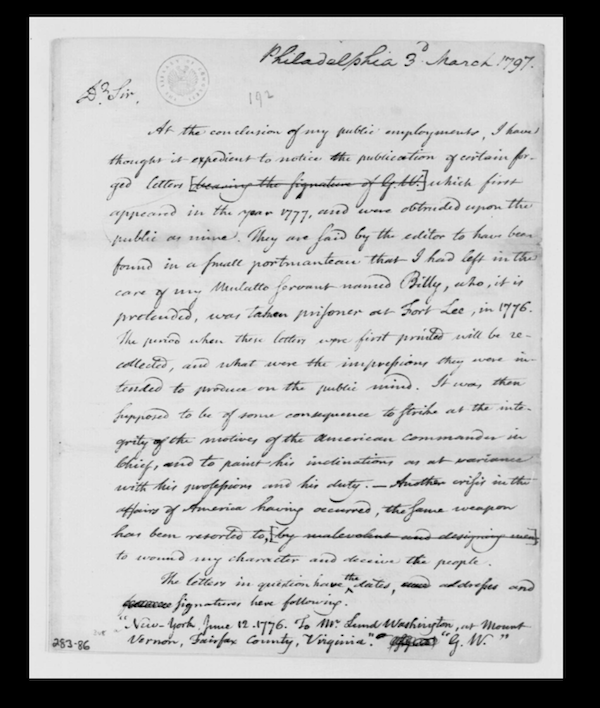 Philadelphia 3d. March 1797.
Dr. Sir,
192
At the conclusion of my public employments, I have
thought it expedient to notice the publication of certain for-
ged letters [bearing the signature of G. W.] which first
appeared in the year 1777, and were obtruded upon the
public as mine. They are said by the editor to have been
found in a small portmanteau that I had left in the
care of my Mulatto servant named Billy, who, it is
pretended, was taken prisoner at Fort Lee, in 1776.
The period when these letters were first printed will be re-
collected, and what were the impressions they were in-
tended to produce on the public mind. It was then
supposed to be of some consequence to strike at the inte-
grity of the motives of the American commander in
Chief, and to paint his inclinations as at variance
with his professions and his duty. — Another crisis in the
affairs of America having occurred, the same weapon
has been resorted to, [by malevolent and designing men]
to wound my character and deceive the people.
The letters in question have the dates, addresses and
signatures here following.
"New-York, June 12. 1776. To Mr. Lund Washington, at Mount
Vernon, Fairfax County, Virginia." "G. W."
283-86